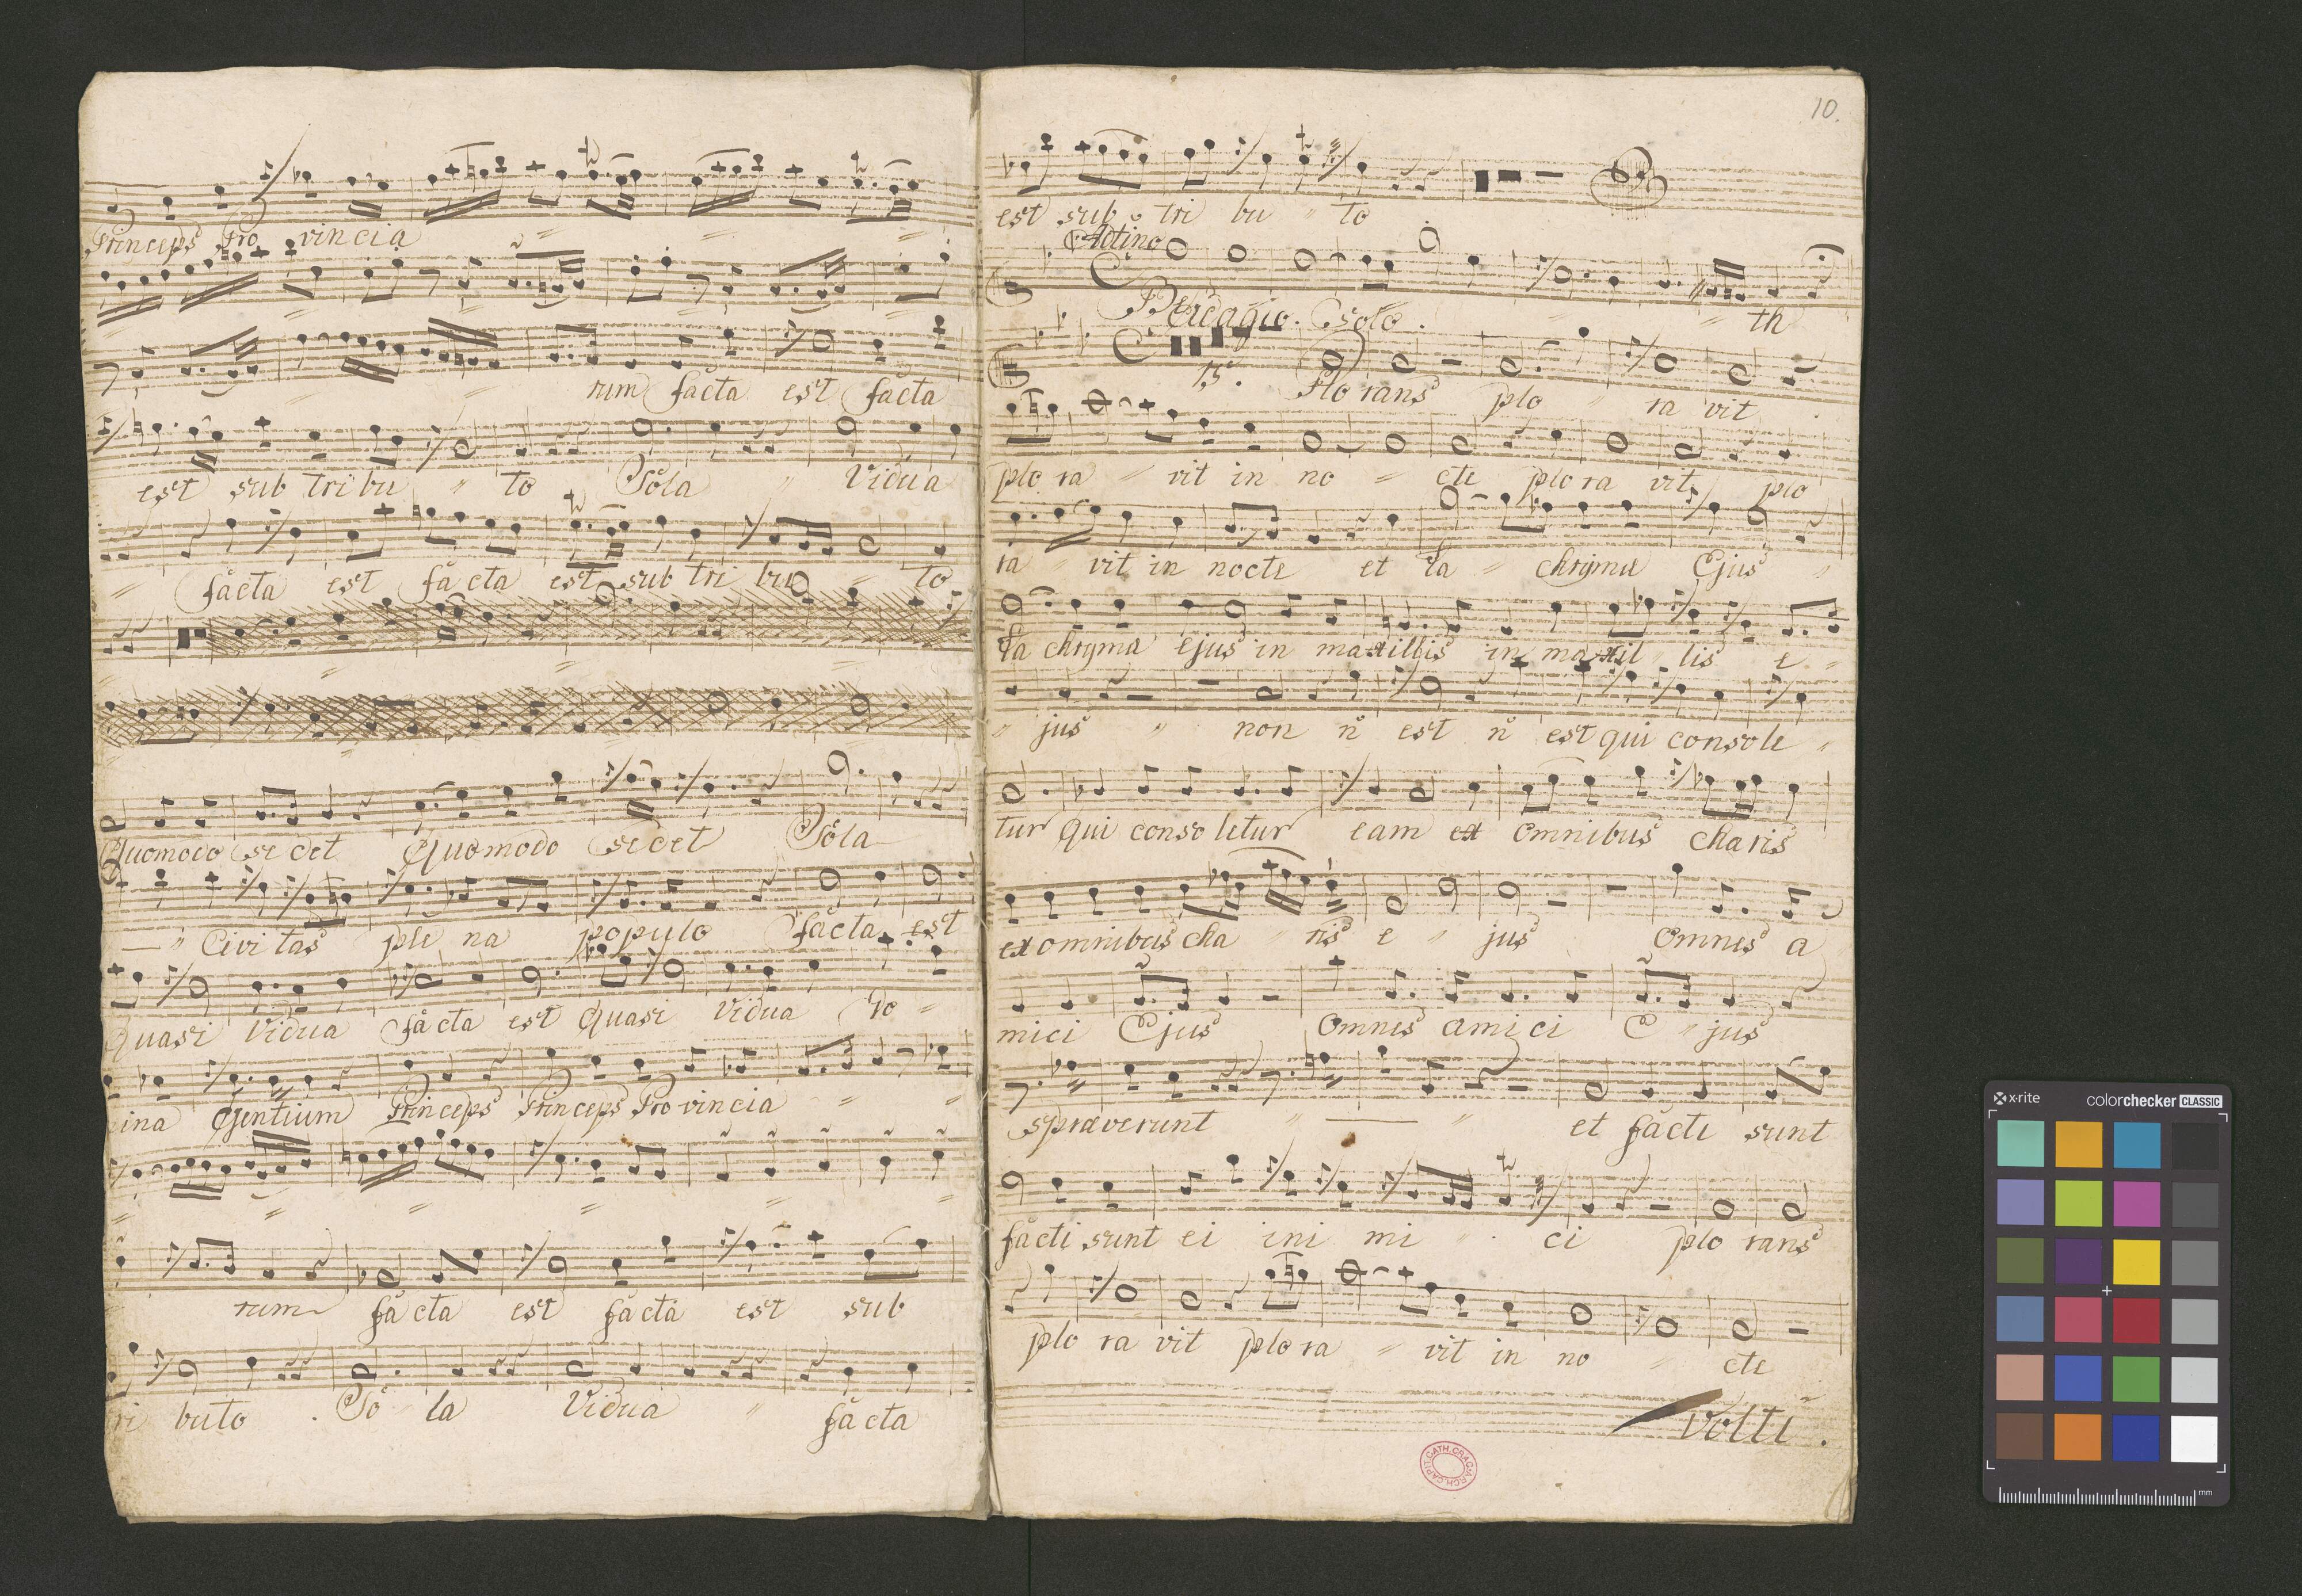 Princeps Pro vincia
rum facta est facta
est sub tri bu to Sola Vidua
facta est facta est sub tri bu to
Quomodo sedet Quomodo sedet Sola
Civi tas ple na populo facta est
Quasi Vidua facta est Quasi Vidua Do
ina Gentium Princeps Princeps Pro vincia
rum facta est facta est sub
ri buto . Sola Vidua facta
10.
est sub tri bu to
Beth
Adagio. Solo.
15.
Plo rans plo ra vit
plo ra vit in no cte plo ra vit plo
ra vit in nocte et la chryma Ejus
la chryma ejus in maxillis in maxil lis e
jus non n est n est qui console
tur qui conso letur eam ex omnibus charis
ex omnibus cha ris e jus Omnes a
mici Ejus Omnes amici E jus
spraeverunt et facti sunt
facti sunt ei ini mi ci plo rans
plo ra vit plo ra vit in no cte
Volti.
x-rite colorchecker CLASSIC
mm